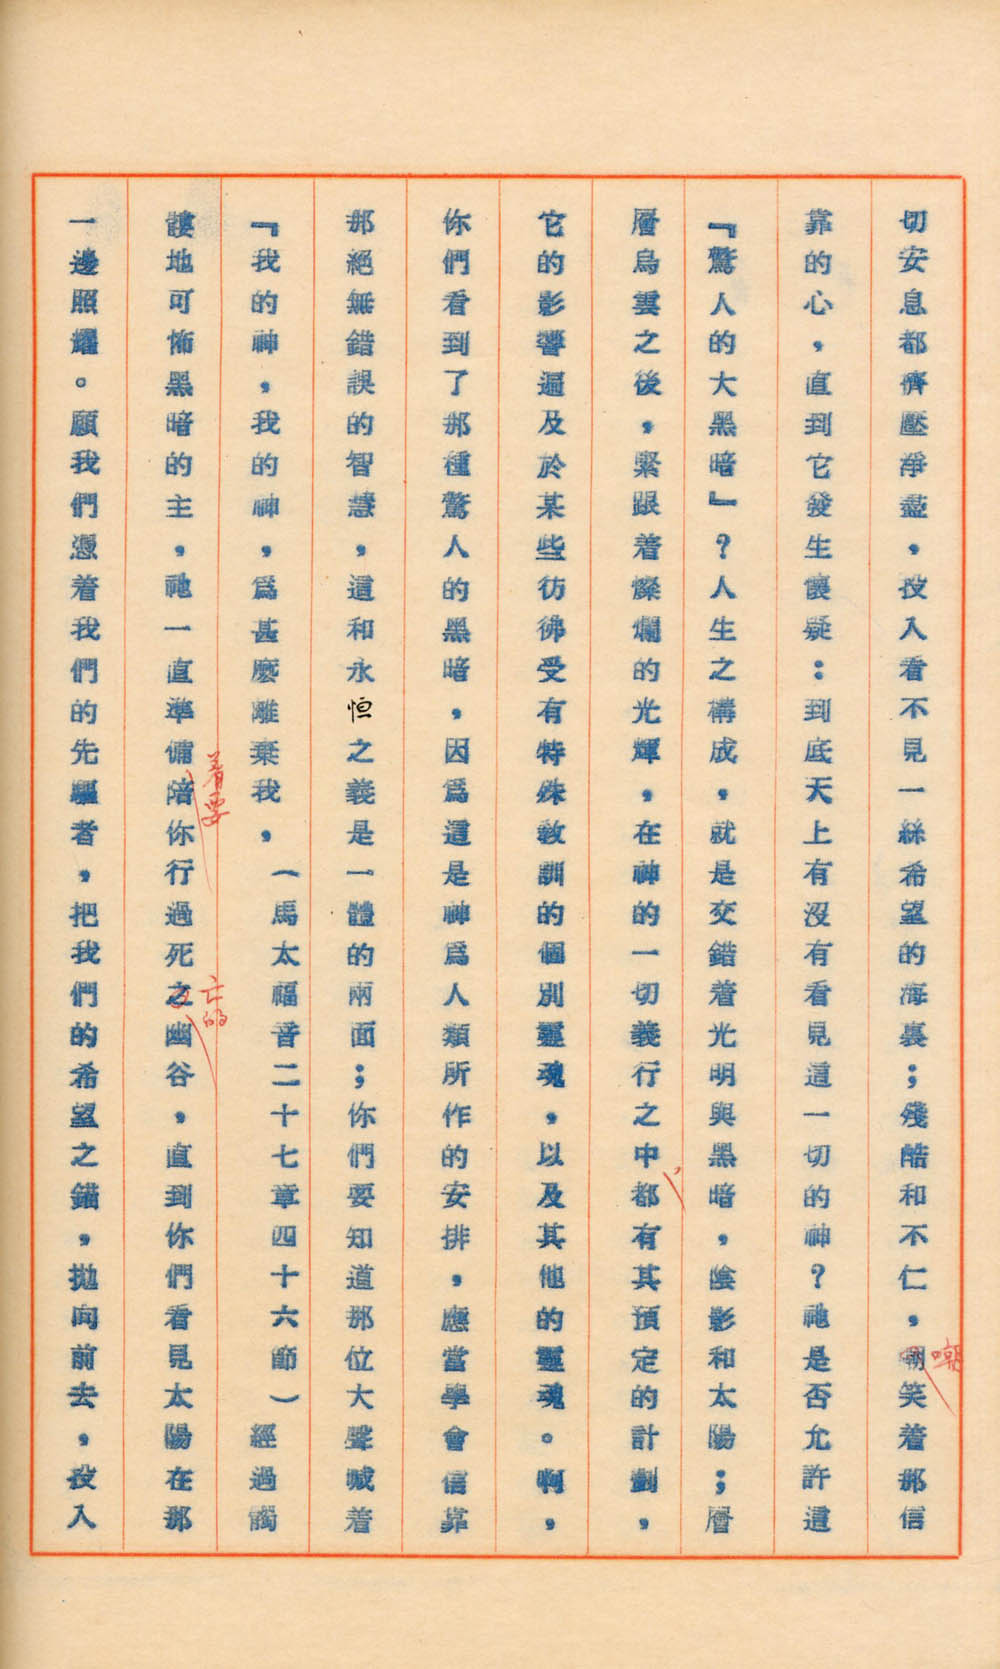 切安息都擠壓淨盡，投入看不見一絲希望的海裏；殘酷和不仁，嘲笑着那信
靠的心，直到它發生懷疑：到底天上有沒有看見這一切的神？祂是否允許這
『驚人的大黑暗』？人生之構成，就是交錯着光明與黑暗，陰影和太陽；層
層烏雲之後，緊跟着燦爛的光輝，在神的一切義行之中，都有其預定的計劃，
它的影響遍及於某些彷彿受有特殊教訓的個別靈魂，以及其他的靈魂。啊，
你們看到了那種驚人的黑暗，因爲這是神爲人類所作的安排，應當學會信靠
那絕無錯誤的智慧，這和永恒之義是一體的兩面；你們要知道那位大聲喊着
『我的神，我的神，爲甚麽離棄我，（馬太福音二十七章四十六節）經過髑
髏地可怖黑暗的主，祂一直準備着要陪你行過死亡的幽谷，直到你們看見太陽在那
一邊照耀。願我們憑着我們的先驅者，把我們的希望之錨，拋向前去，投入